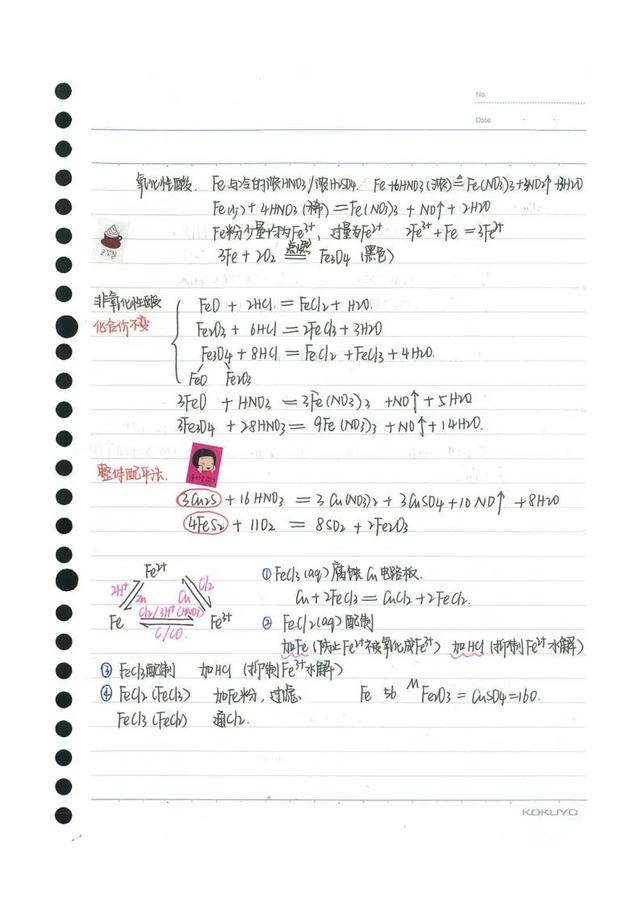 No.
Date
氧化性酸. Fe与冷的浓HNO3/浓H2SO4. Fe+6HNO3(浓)≜Fe(NO3)3+3NO2↑+3H2O
Fe(少)+4HNO3(稀)=Fe(NO3)3+NO↑+2H2O
Fe粉少量均为Fe³⁺, 过量为Fe²⁺ 2Fe³⁺+Fe=3Fe²⁺
3Fe+2O2 点燃 Fe3O4(黑色)
非氧化性酸
化合价不变
FeO+2HCl=FeCl2+H2O.
Fe2O3+6HCl=2FeCl3+3H2O
Fe3O4+8HCl=FeCl2+FeCl3+4H2O.
FeO Fe2O3
3FeO+HNO3=3Fe(NO3)3+NO↑+5H2O
3Fe3O4+28HNO3=9Fe(NO3)3+NO↑+14H2O.
整体配平法.
3Cu2S+16HNO3=3Cu(NO3)2+3CuSO4+10NO↑+8H2O
4FeS2+11O2=8SO2+2Fe2O3
Fe²⁺
2H⁺ Zn Cu Cl2
Fe Cl2/3H⁺(HNO3) Fe³⁺
C/CO
①FeCl3(aq)腐蚀Cu电路板.
Cu+2FeCl3=CuCl2+2FeCl2.
②FeCl2(aq)配制
加Fe(防止Fe²⁺被氧化成Fe³⁺) 加HCl(抑制Fe²⁺水解)
③FeCl3配制 加HCl(抑制Fe³⁺水解)
④FeCl2(FeCl3) 加Fe粉,过滤. Fe 56 M Fe2O3=CuSO4=160.
FeCl3(FeCl2) 通Cl2.
KOKUYO